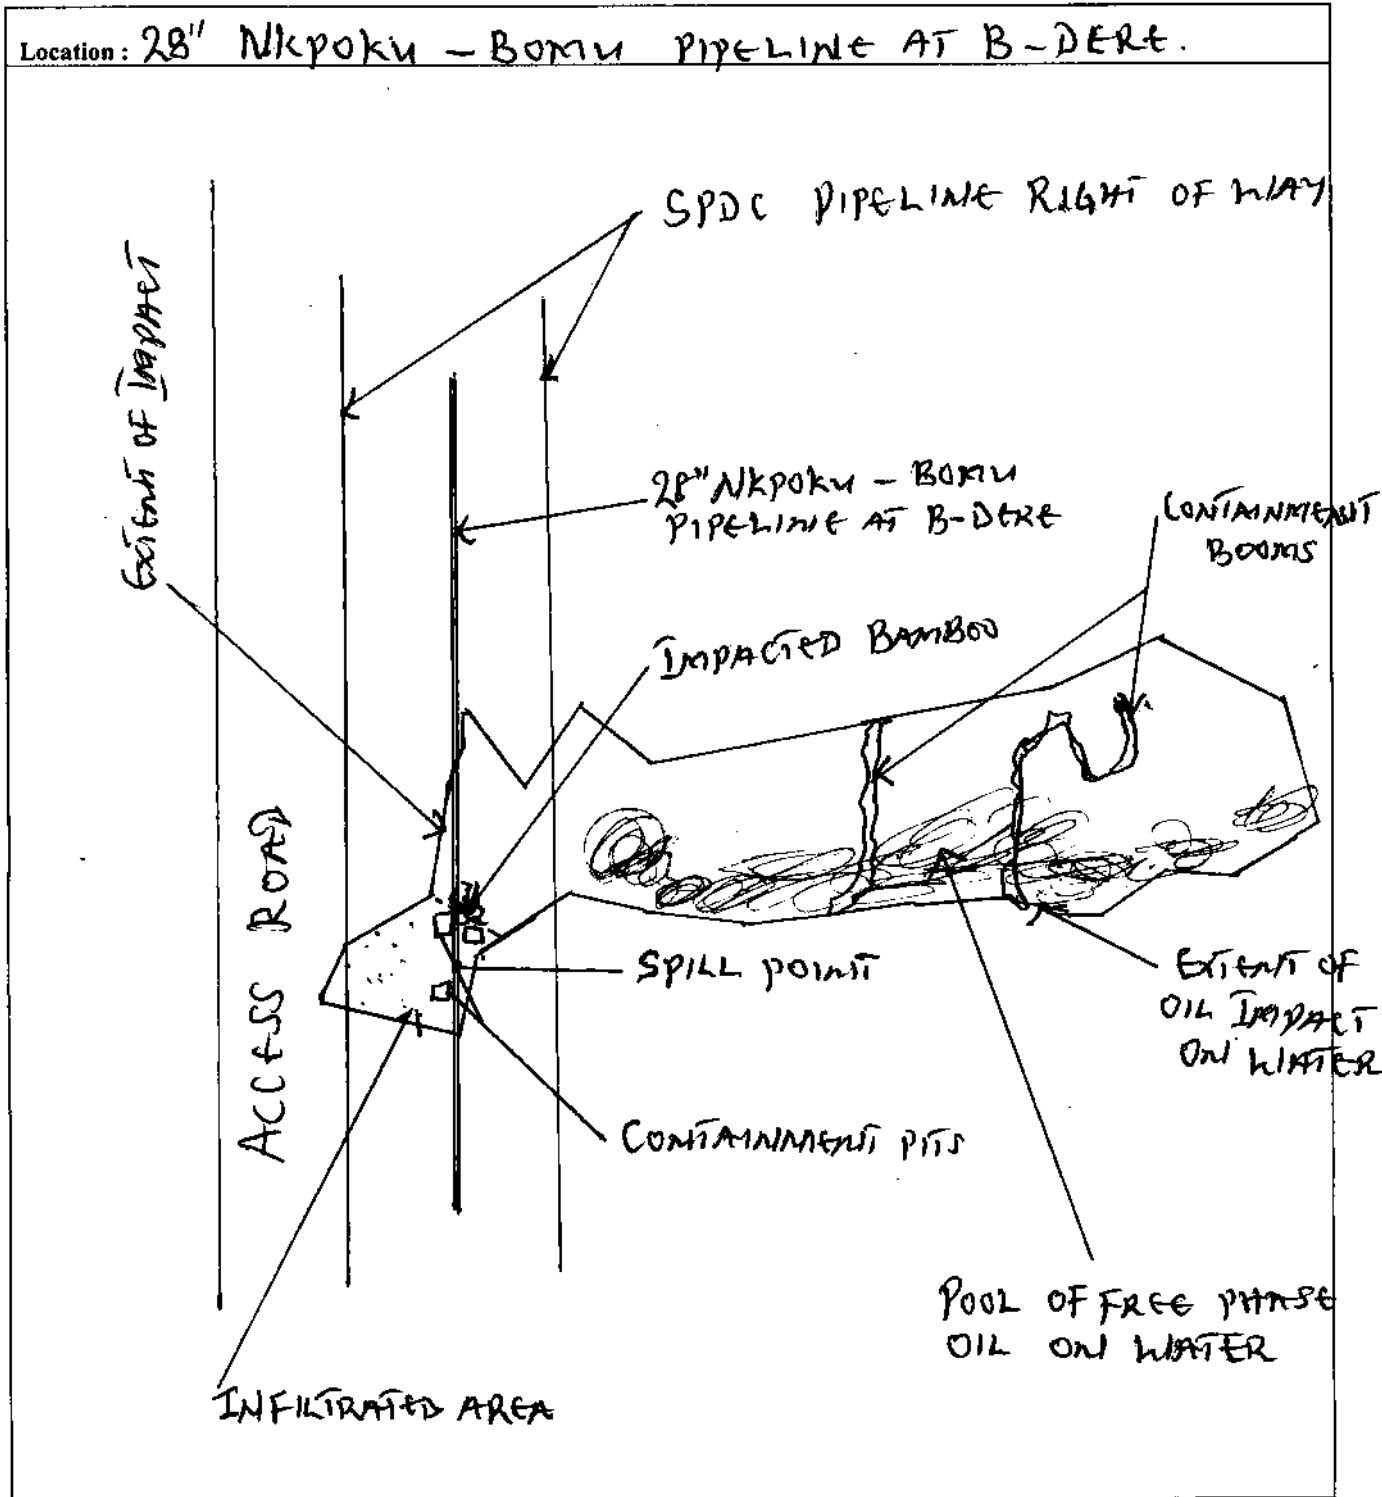 Location : 28" NKPOKU - BOMU PIPELINE AT B-DERE.
SPDC PIPELINE RIGHT OF WAY
EXTENT OF IMPACT
28" NKPOKU - BOMU
PIPELINE AT B-DERE
CONTAINMENT
BOOMS
IMPACTED BAMBOO
ACCESS ROAD
SPILL POINT
EXTENT OF
OIL IMPACT
ON WATER
CONTAINMENT PITS
POOL OF FREE PHASE
OIL ON WATER
INFILTRATED AREA